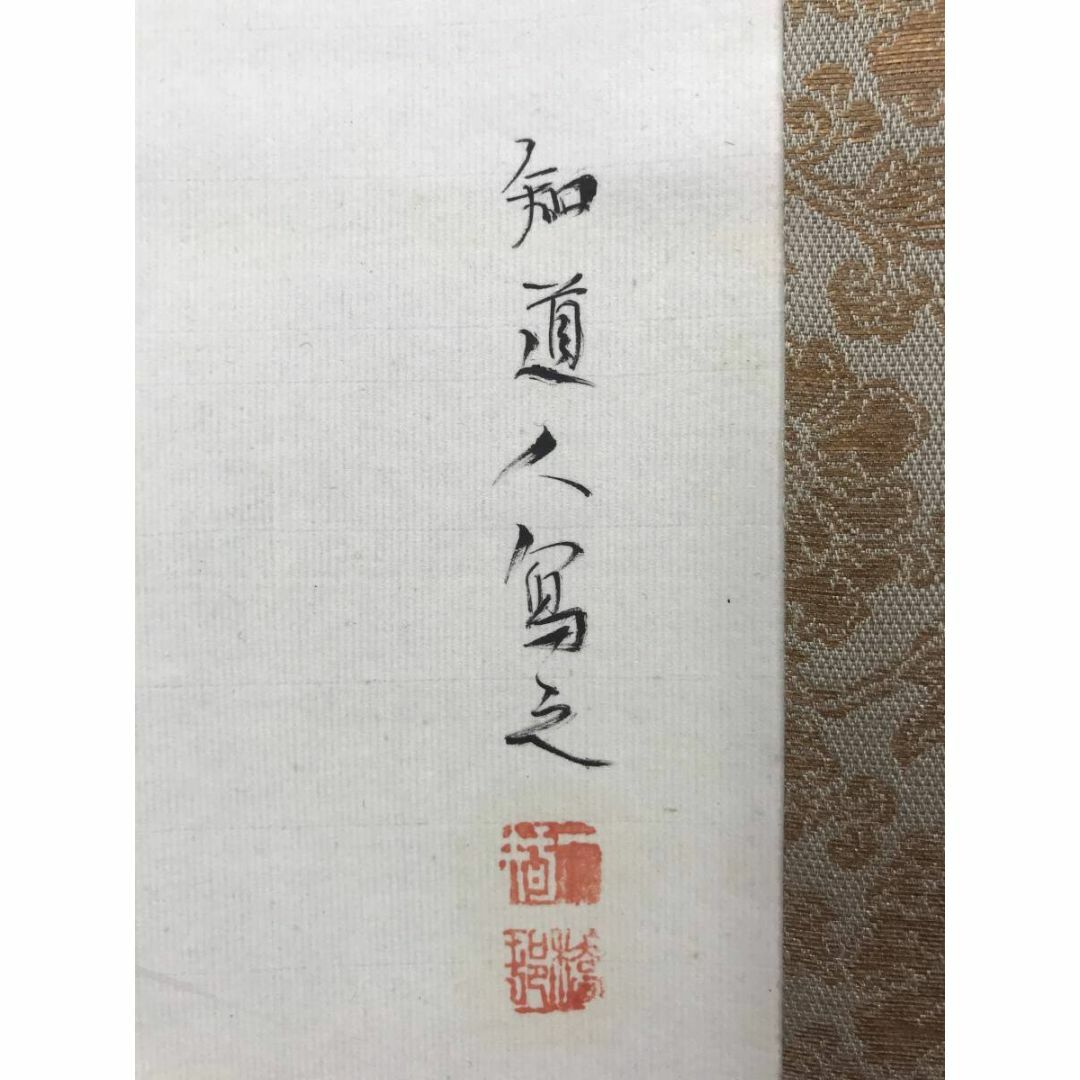 知道人寫之